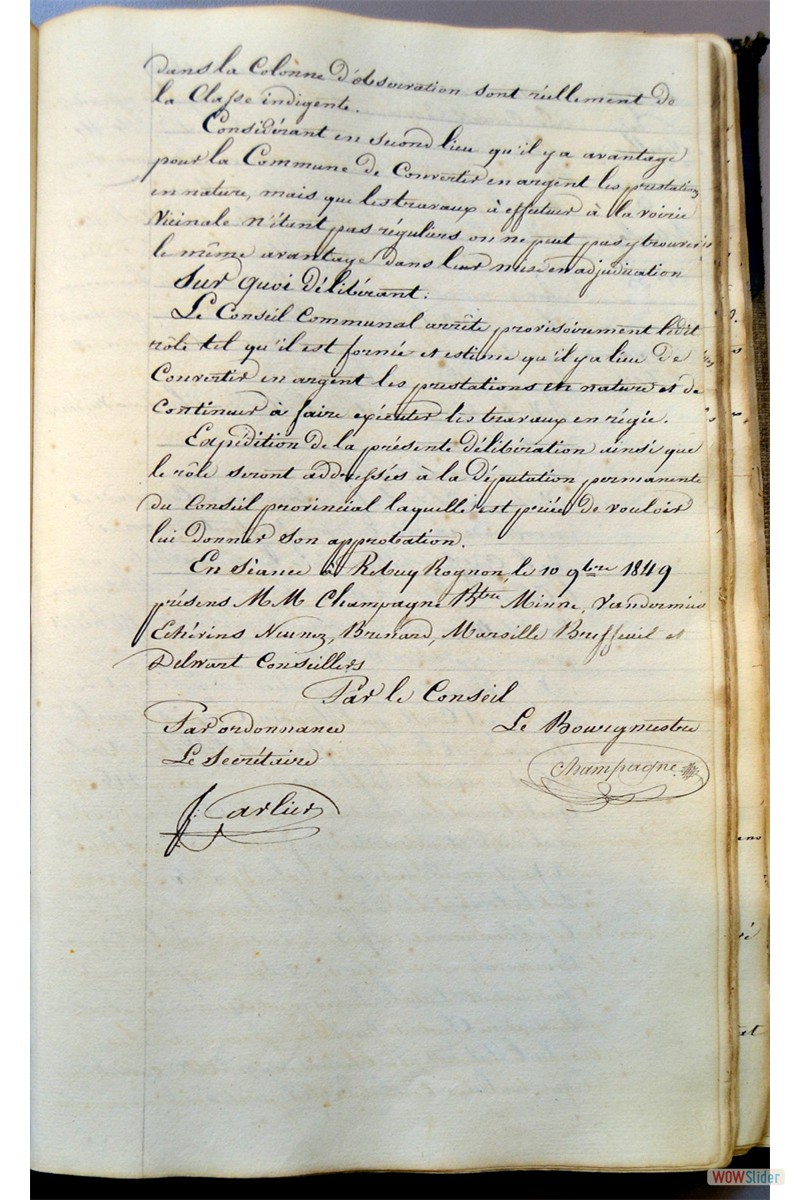 dans la Colonne d'observation sont réellement de
la Classe indigente.
Considérant en second lieu qu'il y a avantage
pour la Commune de Convertir en argent les prestations
en nature, mais que les travaux à effectuer à la voirie
Vicinale n'étant pas réguliers on ne peut pas y trouver
le même avantage dans leur mise en adjudication
Sur quoi délibérant:
Le Conseil Communal arrête provisoirement ledit
rôle tel qu'il est formée et estime qu'il y a lieu de
Convertir en argent les prestations en nature et de
Continuer à faire exécuter les travaux en régie.
Expédition de la présente délibération ainsi que
le rôle seront addressées à la députation permanente
du Conseil provincial laquelle est priée de vouloir
lui donner son approbation.
En Séance à Rebecq Rognon le 10 9bre 1849
présens MM Champagne Btre, Minne, Vandormius
Echevins Neunez, Brenard, Marsille Breffeuil et
Delwart Conseillers
Par le Conseil
Par ordonnance
Le Bourgmestre
Le Secrétaire
Champagne
J: Carlier
WOWSlider